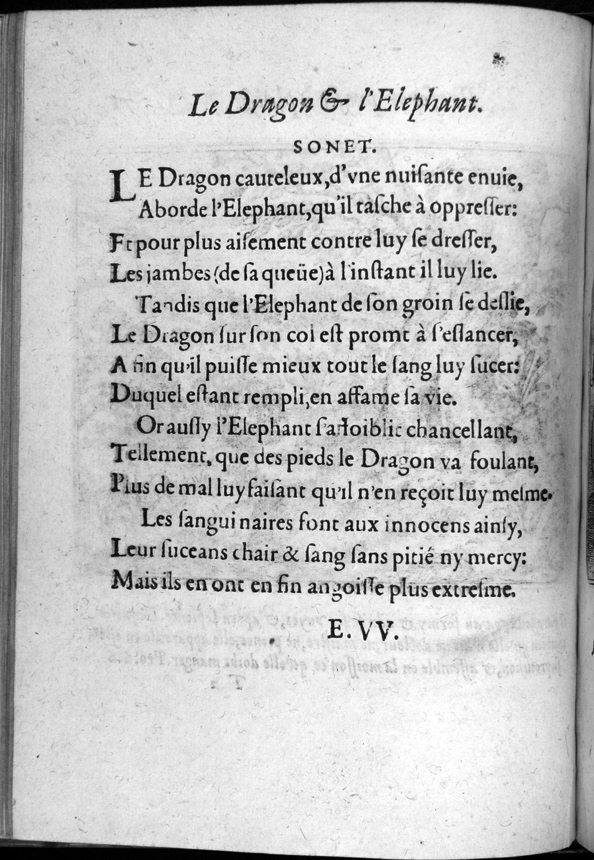 Le Dragon & l'Elephant.
SONET.
LE Dragon cauteleux, d'vne nuiſante enuie,
Aborde l'Elephant, qu'il taſche à oppreſſer:
Et pour plus aiſement contre luy ſe dreſſer,
Les jambes (de ſa queüe) à l'inſtant il luy lie.
Tandis que l'Elephant de ſon groin ſe deſlie,
Le Dragon ſur ſon col eſt promt à s'eſlancer,
A fin qu'il puiſſe mieux tout le ſang luy ſucer:
Duquel eſtant rempli, en affame ſa vie.
Or auſſy l'Elephant s'affoiblit chancellant,
Tellement, que des pieds le Dragon va foulant,
Plus de mal luy faiſant qu'il n'en reçoit luy meſme.
Les ſanguinaires font aux innocens ainſy,
Leur ſuceans chair & ſang ſans pitié ny mercy:
Mais ils en ont en fin angoiſſe plus extreſme.
E. VV.